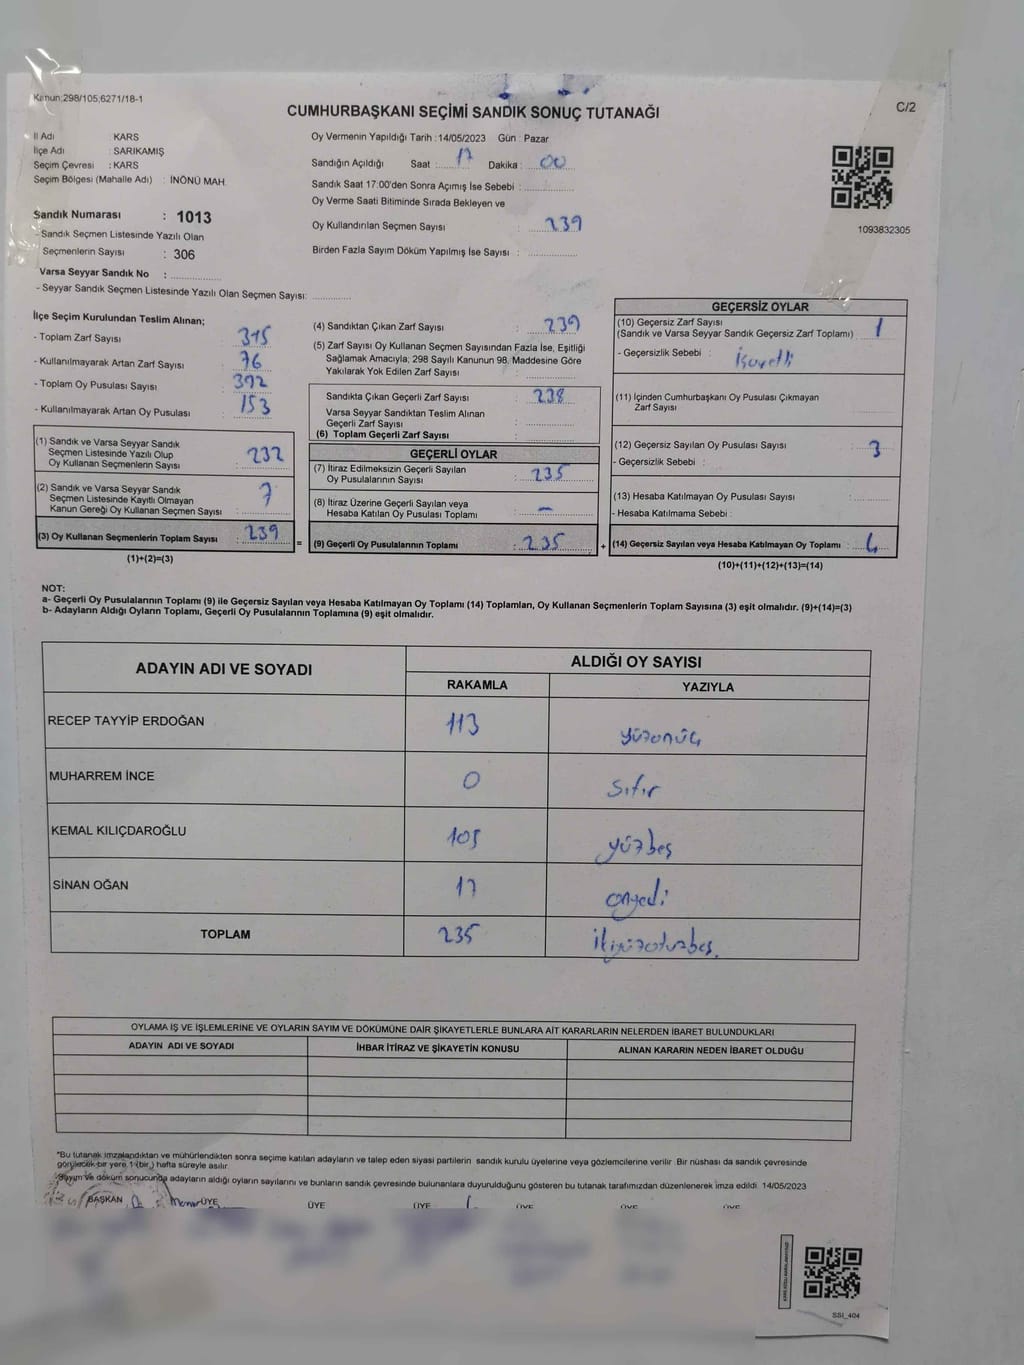 Kanun:298/105;6271/18-1
C/2
CUMHURBAŞKANI SEÇİMİ SANDIK SONUÇ TUTANAĞI
İl Adı KARS
İlçe Adı : SARIKAMIŞ
Seçim Çevresi : KARS
Seçim Bölgesi (Mahalle Adı) : İNÖNÜ MAH.
Oy Vermenin Yapıldığı Tarih : 14/05/2023 Gün : Pazar
Sandığın Açıldığı Saat : 17 Dakika : 00
Sandık Saat 17:00'den Sonra Açımış İse Sebebi :
Oy Verme Saati Bitiminde Sırada Bekleyen ve
Oy Kullandırılan Seçmen Sayısı : 239
Birden Fazla Sayım Döküm Yapılmış İse Sayısı :
1093832305
Sandık Numarası : 1013
- Sandık Seçmen Listesinde Yazılı Olan
Seçmenlerin Sayısı : 306
Varsa Seyyar Sandık No :
- Seyyar Sandık Seçmen Listesinde Yazılı Olan Seçmen Sayısı:
İlçe Seçim Kurulundan Teslim Alınan;
- Toplam Zarf Sayısı : 315
- Kullanılmayarak Artan Zarf Sayısı : 76
- Toplam Oy Pusulası Sayısı : 392
- Kullanılmayarak Artan Oy Pusulası : 153
(1) Sandık ve Varsa Seyyar Sandık
Seçmen Listesinde Yazılı Olup
Oy Kullanan Seçmenlerin Sayısı : 232
(2) Sandık ve Varsa Seyyar Sandık
Seçmen Listesinde Kayıtlı Olmayan
Kanun Gereği Oy Kullanan Seçmen Sayısı : 7
(3) Oy Kullanan Seçmenlerin Toplam Sayısı : 239
(1)+(2)=(3)
(4) Sandıktan Çıkan Zarf Sayısı : 239
(5) Zarf Sayısı Oy Kullanan Seçmen Sayısından Fazla İse, Eşitliği
Sağlamak Amacıyla; 298 Sayılı Kanunun 98. Maddesine Göre
Yakılarak Yok Edilen Zarf Sayısı :
Sandıkta Çıkan Geçerli Zarf Sayısı : 238
Varsa Seyyar Sandıktan Teslim Alınan
Geçerli Zarf Sayısı :
(6) Toplam Geçerli Zarf Sayısı :
GEÇERLİ OYLAR
(7) İtiraz Edilmeksizin Geçerli Sayılan
Oy Pusulalarının Sayısı : 235
(8) İtiraz Üzerine Geçerli Sayılan veya
Hesaba Katılan Oy Pusulası Toplamı : -
= (9) Geçerli Oy Pusulalarının Toplamı : 235 +
GEÇERSİZ OYLAR
(10) Geçersiz Zarf Sayısı
(Sandık ve Varsa Seyyar Sandık Geçersiz Zarf Toplamı) : 1
- Geçersizlik Sebebi : İşaretli
(11) İçinden Cumhurbaşkanı Oy Pusulası Çıkmayan
Zarf Sayısı
(12) Geçersiz Sayılan Oy Pusulası Sayısı : 3
- Geçersizlik Sebebi :
(13) Hesaba Katılmayan Oy Pusulası Sayısı :
- Hesaba Katılmama Sebebi :
(14) Geçersiz Sayılan veya Hesaba Katılmayan Oy Toplamı : 4
(10)+(11)+(12)+(13)=(14)
NOT:
a- Geçerli Oy Pusulalarının Toplamı (9) ile Geçersiz Sayılan veya Hesaba Katılmayan Oy Toplamı (14) Toplamları, Oy Kullanan Seçmenlerin Toplam Sayısına (3) eşit olmalıdır. (9)+(14)=(3)
b- Adayların Aldığı Oyların Toplamı, Geçerli Oy Pusulalarının Toplamına (9) eşit olmalıdır.
ADAYIN ADI VE SOYADI
ALDIĞI OY SAYISI
RAKAMLA YAZIYLA
RECEP TAYYİP ERDOĞAN 113 yüzonüç
MUHARREM İNCE 0 sıfır
KEMAL KILIÇDAROĞLU 105 yüzbeş
SİNAN OĞAN 17 onyedi
TOPLAM 235 ikiyüzotuzbeş.
OYLAMA İŞ VE İŞLEMLERİNE VE OYLARIN SAYIM VE DÖKÜMÜNE DAİR ŞİKAYETLERLE BUNLARA AİT KARARLARIN NELERDEN İBARET BULUNDUKLARI
ADAYIN ADI VE SOYADI İHBAR İTİRAZ VE ŞİKAYETİN KONUSU ALINAN KARARIN NEDEN İBARET OLDUĞU
*Bu tutanak imzalandıktan ve mühürlendikten sonra seçime katılan adayların ve talep eden siyasi partilerin sandık kurulu üyelerine veya gözlemcilerine verilir. Bir nüshası da sandık çevresinde
görülecek bir yere 1 (bir) hafta süreyle asılır.
Sayım ve döküm sonucunda adayların aldığı oyların sayılarını ve bunların sandık çevresinde bulunanlara duyurulduğunu gösteren bu tutanak tarafımızdan düzenlenerek imza edildi. 14/05/2023
BAŞKAN ÜYE ÜYE ÜYE ÜYE ÜYE ÜYE
SSI_404